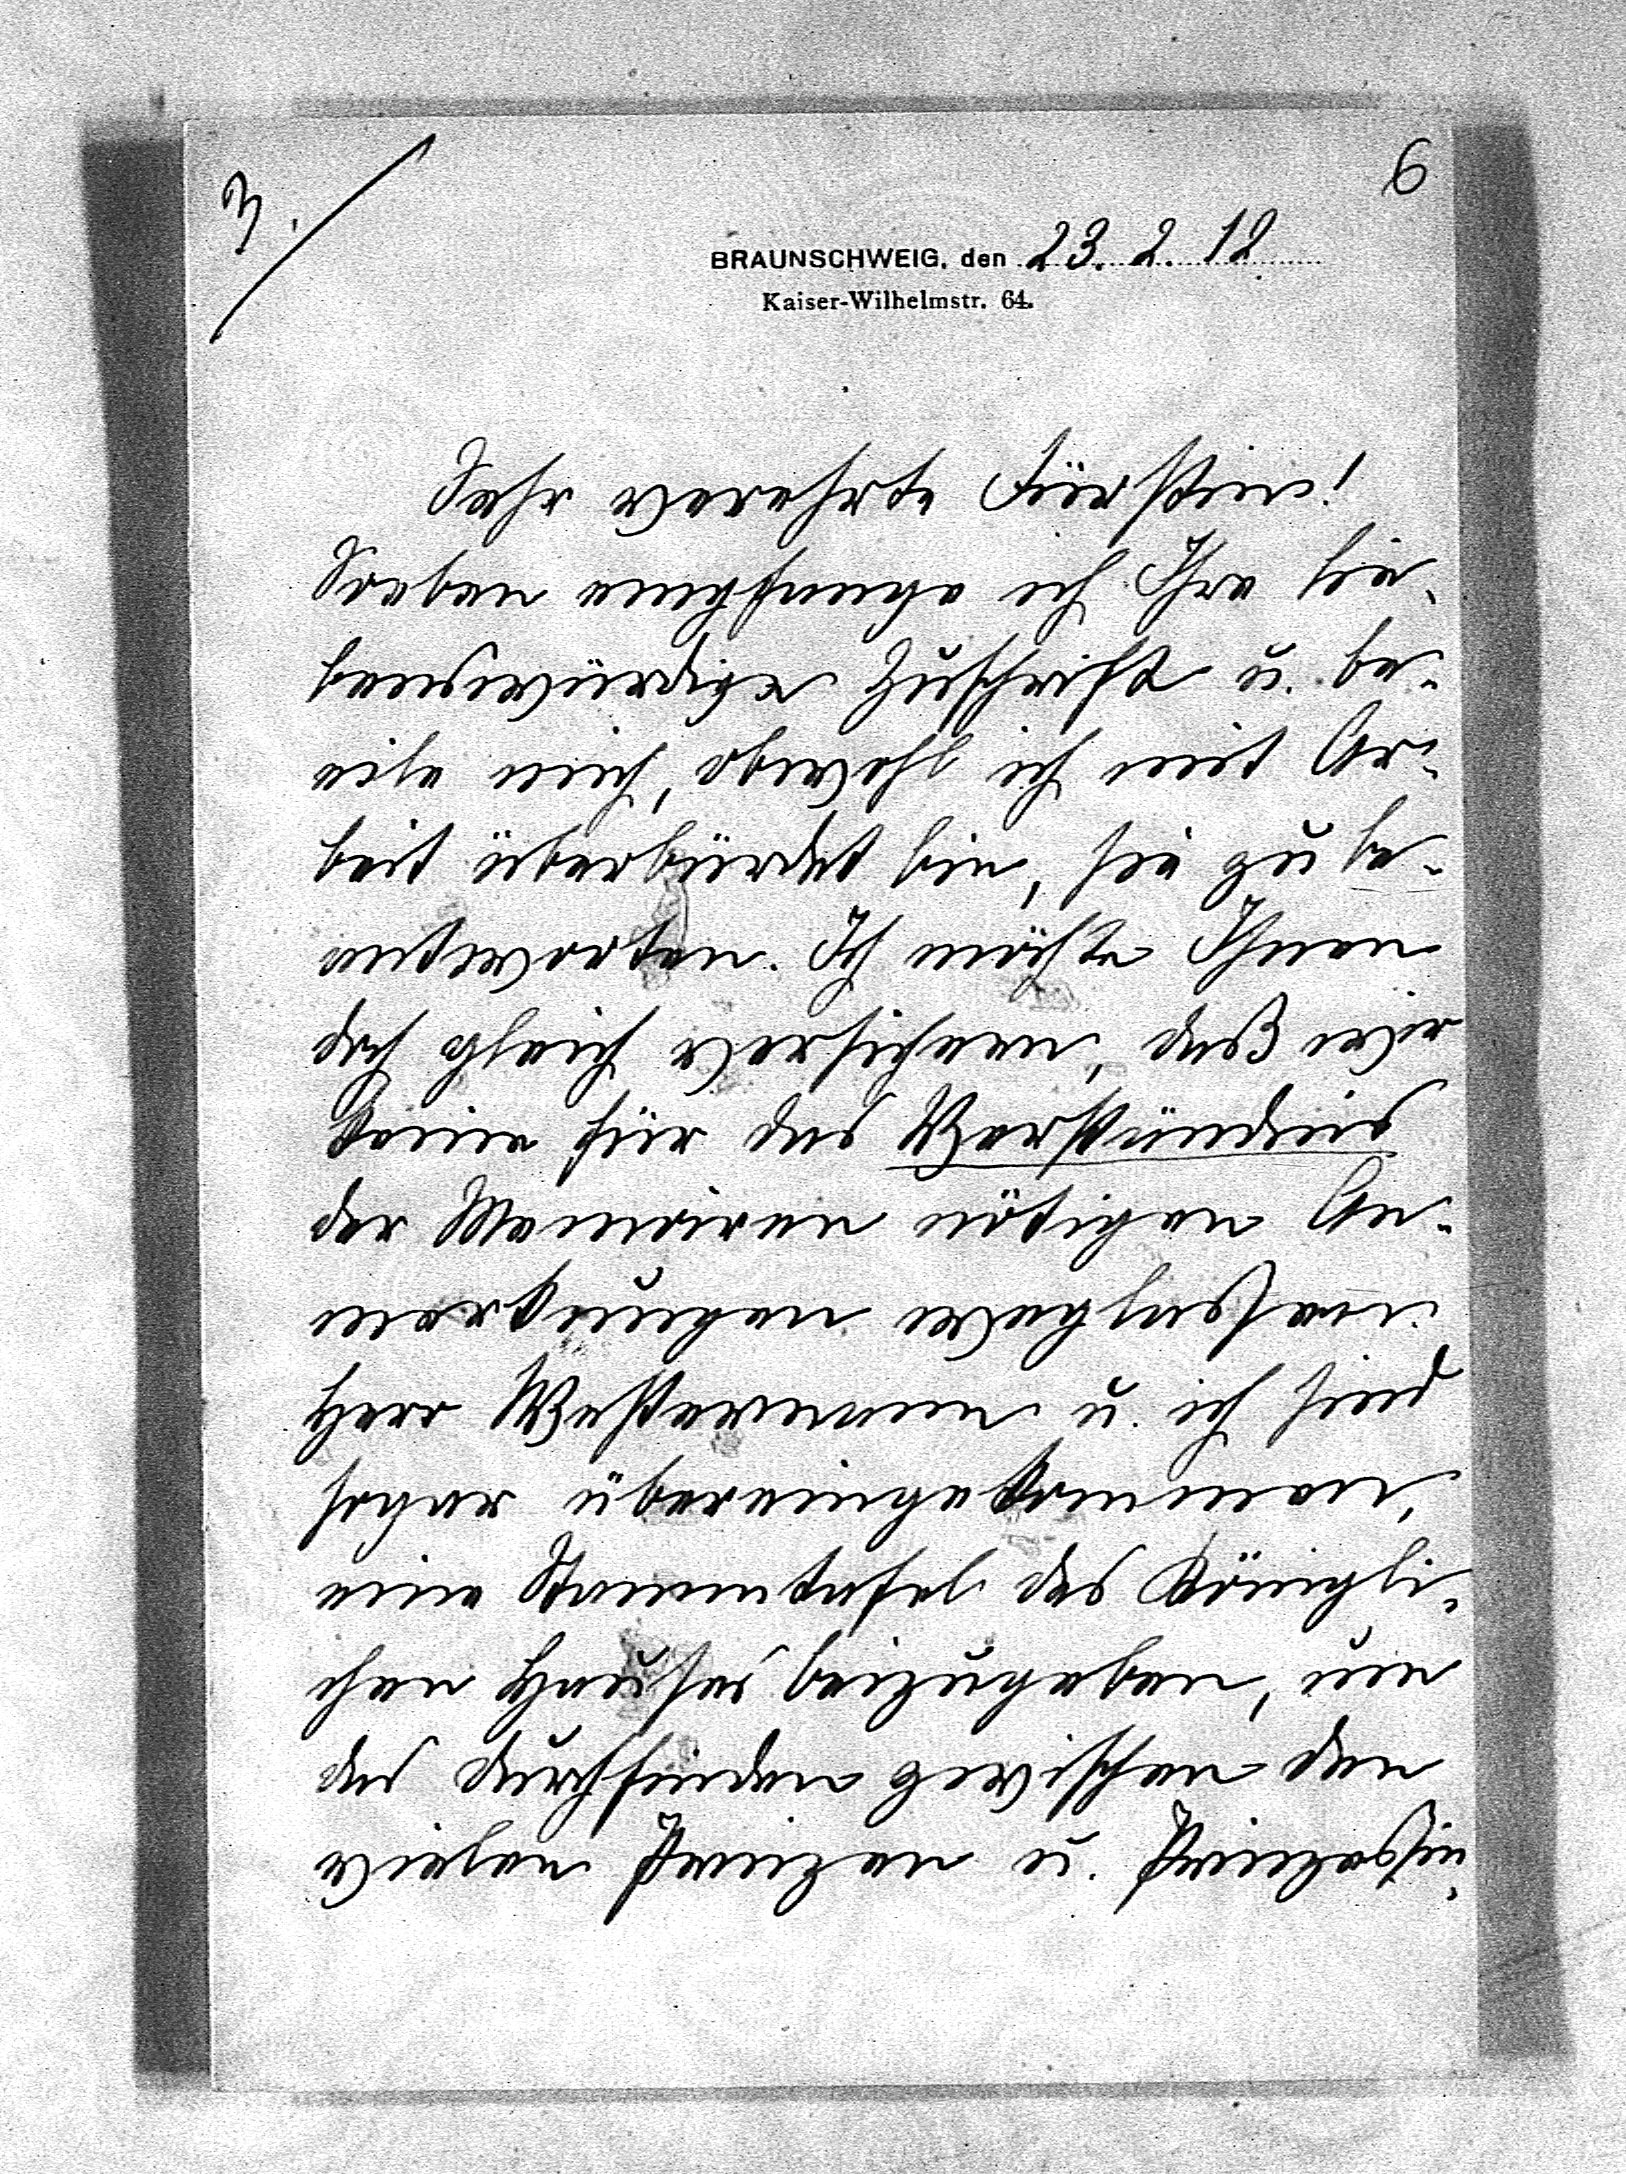 3.
6
BRAUNSCHWEIG, den 23. 2. 12
Kaiser-Wilhelmstr. 64.
Sehr verehrte Fürstin!
Soeben empfange ich Ihre lie-
benswürdige Zuschrift u. be-
eile mich, obwohl ich mit Ar-
beit überbürdet bin, sie zu be-
antworten. Ich möchte Ihnen
doch gleich versichern, daß wir
keine für das Verständnis
der Memoiren nötigen An-
merkungen weglassen.
Herr Westermann u. ich sind
sogar übereingekommen,
eine Stammtafel des Königli-
chen Hauses beizugeben, um
das Durchfinden zwischen den
vielen Prinzen u. Prinzessin-